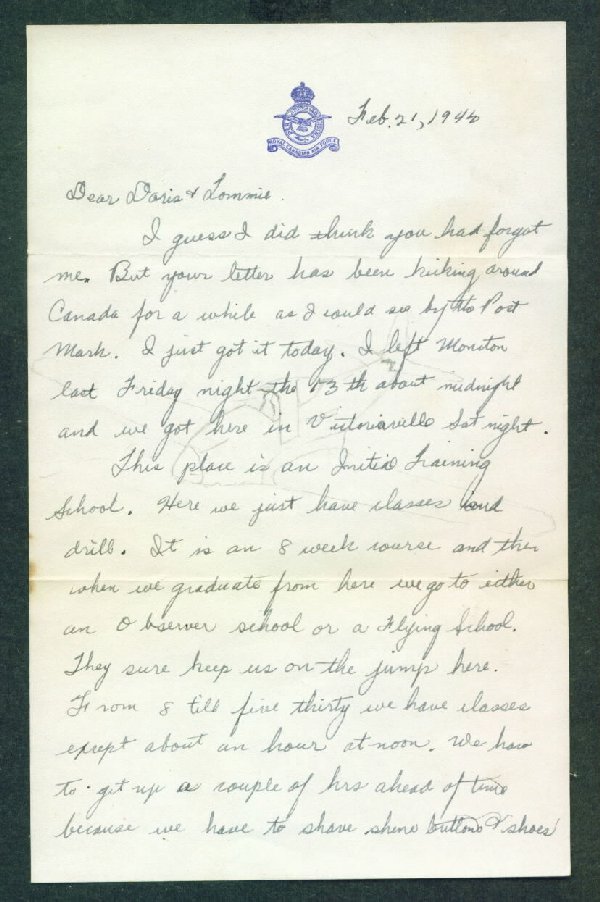 ROYAL CANADIAN AIR FORCE
Feb. 21, 1942
Dear Doris & Tommie.
I guess I did think you had forgot
me. But your letter has been kicking around
Canada for a while as I could see by the Post
Mark. I just got it today. I left Moncton
last Friday night the 13th about midnight
and we got here in Victoriaville Sat night.
This place is an Initial Training
School. Here we just have classes and
drill. It is an 8 week course and then
when we graduate from here we go to either
an Observer school or a Flying School.
They sure keep us on the jump here.
From 8 till five thirty we have classes
except about an hour at noon. We have
to get up a couple of hrs ahead of time
because we have to shave shine buttons & shoes